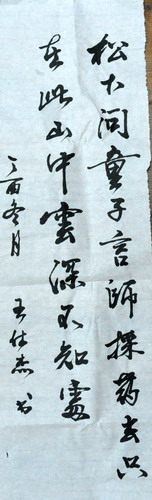 松下问童子言師採药去只
在此山中雲深不知處
丁酉冬月
王仕杰书